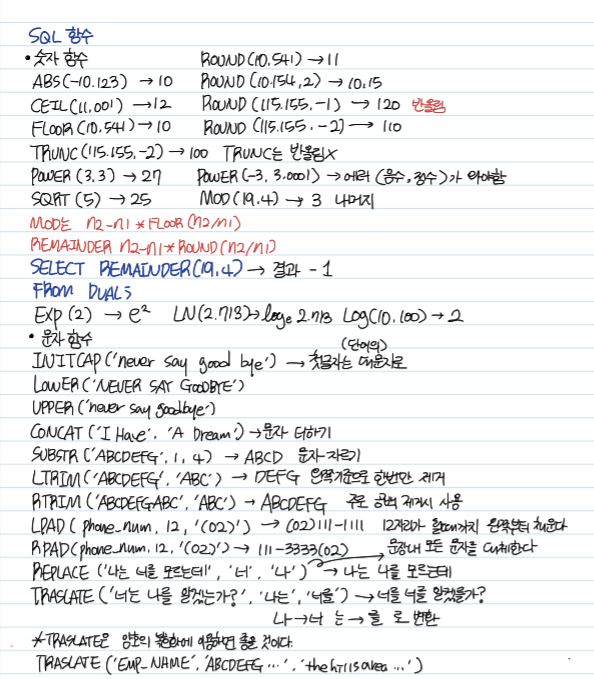 SQL 함수
• 숫자 함수 ROUND(10.541) → 11
ABS(-10.123) → 10 ROUND(10.154, 2) → 10.15
CEIL(11.001) → 12 ROUND(115.155, -1) → 120 반올림
FLOOR(10.541) → 10 ROUND(115.155, -2) → 110
TRUNC(115.155, -2) → 100 TRUNC는 반올림X
POWER(3, 3) → 27 POWER(-3, 3.0001) → 에러 (음수, 정수)가 와야함
SQRT(5) → 25 MOD(19.4) → 3 나머지
MOD는 n2-n1*FLOOR(n2/n1)
REMAINDER n2-n1*ROUND(n2/n1)
SELECT REMAINDER(19.4) → 결과 -1
FROM DUAL;
EXP(2) → e² LN(2.713) → loge 2.713 LOG(10, 100) → 2
• 문자 함수 (단어의)
INITCAP('never say good bye') → 첫글자는 대문자로
LOWER('NEVER SAY GOODBYE')
UPPER('never say goodbye')
CONCAT('I Have', 'A Dream') → 문자 더하기
SUBSTR('ABCDEFG', 1, 4) → ABCD 문자 자르기
LTRIM('ABCDEFG', 'ABC') → DEFG 왼쪽기준으로 한번만 제거
RTRIM('ABCDEFGABC', 'ABC') → ABCDEFG 주로 공백 제거시 사용
LPAD(phone_num, 12, '(02)') → (02)111-1111 12자리가 될때까지 왼쪽부터 채운다
RPAD(phone_num, 12, '(02)') → 111-3333(02) 문장내 모든 문자를 대체한다
REPLACE('나는 너를 모르는데', '너', '나') → 나는 나를 모르는데
TRASLATE('너는 나를 알겠는가?', '나는', '너를') → 너를 너를 알겠를가?
나→너 는→를 로 변환
*TRASLATE은 암호의 변환에 이용하면 좋을 것이다.
TRASLATE('EMP_NAME', 'ABCDEFG ...', 'the